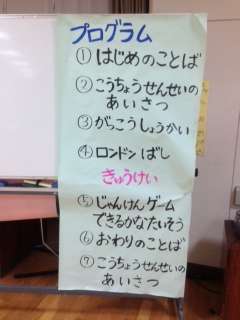 プログラム
① はじめのことば
② こうちょうせんせいの
あいさつ
③ がっこうしょうかい
④ ロンドンばし
きゅうけい
⑤ じゃんけんゲーム
できるかなたいそう
⑥ おわりのことば
⑦ こうちょうせんせいの
あいさつ